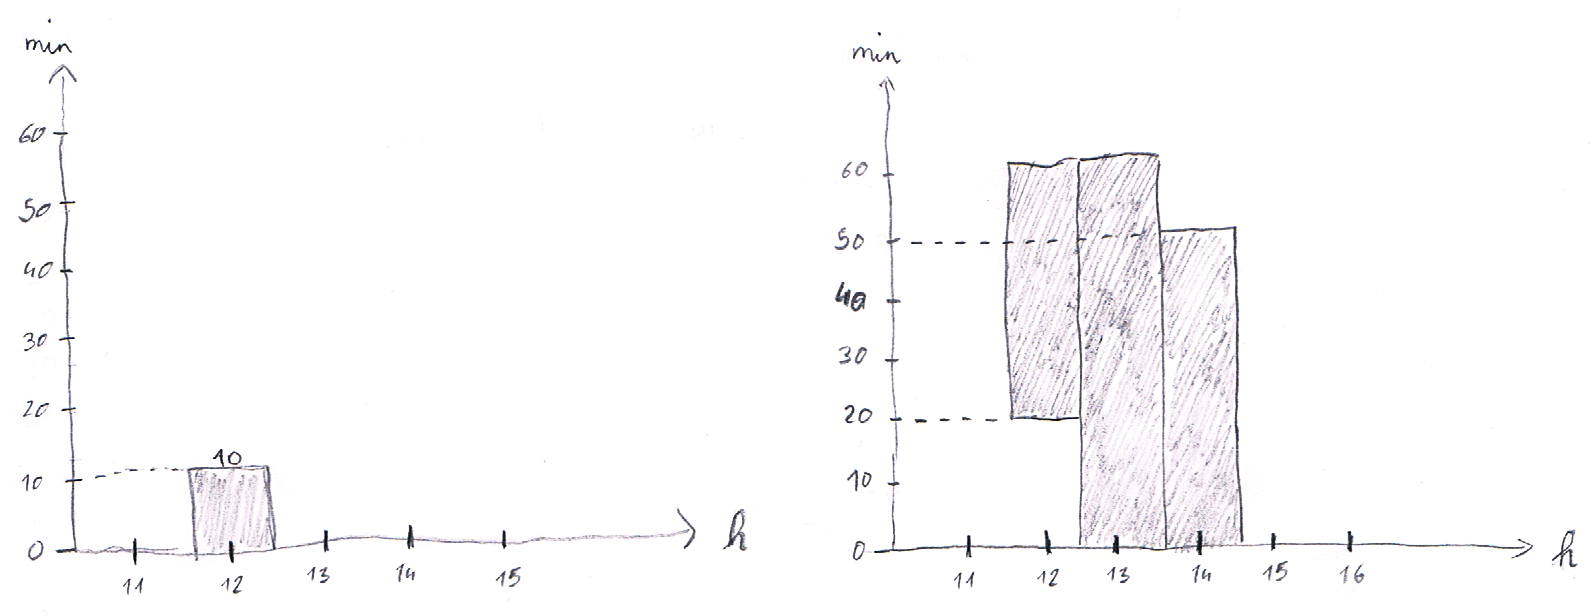 min
60
50
40
30
20
10
0
10
11 12 13 14 15
h
min
60
50
40
30
20
10
0
11 12 13 14 15 16
h